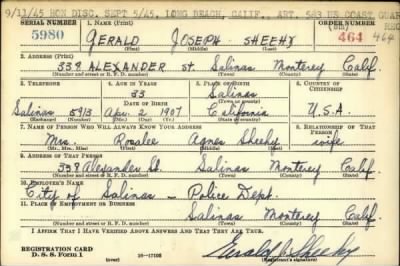 9/11/45 HON DISC, SEPT 5/45, LONG BEACH, CALIF., ART. 583 US COAST GUARD REG
SERIAL NUMBER 1. NAME (Print) ORDER NUMBER
5980 GERALD JOSEPH SHEEHY 464 464
(First) (Middle) (Last)
2. ADDRESS (Print)
338 ALEXANDER St. Salinas Monterey Calif.
(Number and street or R. F. D. number) (Town) (County) (State)
3. TELEPHONE 4. AGE IN YEARS 5. PLACE OF BIRTH 6. COUNTRY OF CITIZENSHIP
33 Salinas
DATE OF BIRTH (Town or county)
Salinas 5913 Apr. 2 1907 California U.S.A.
(Exchange) (Number) (Mo.) (Day) (Yr.) (State or country)
7. NAME OF PERSON WHO WILL ALWAYS KNOW YOUR ADDRESS 8. RELATIONSHIP OF THAT PERSON
Mrs. Rosalee Agnes Sheehy wife
(Mr., Mrs., Miss) (First) (Middle) (Last)
9. ADDRESS OF THAT PERSON
338 Alexander St. Salinas Monterey Calif.
(Number and street or R. F. D. number) (Town) (County) (State)
10. EMPLOYER'S NAME
City of Salinas - Police Dept.
11. PLACE OF EMPLOYMENT OR BUSINESS
Salinas Monterey Calif.
(Number and street or R. F. D. number) (Town) (County) (State)
I AFFIRM THAT I HAVE VERIFIED ABOVE ANSWERS AND THAT THEY ARE TRUE.
REGISTRATION CARD
D. S. S. Form 1 (over) 16-17105 Gerald J. Sheehy
(Registrant's signature)